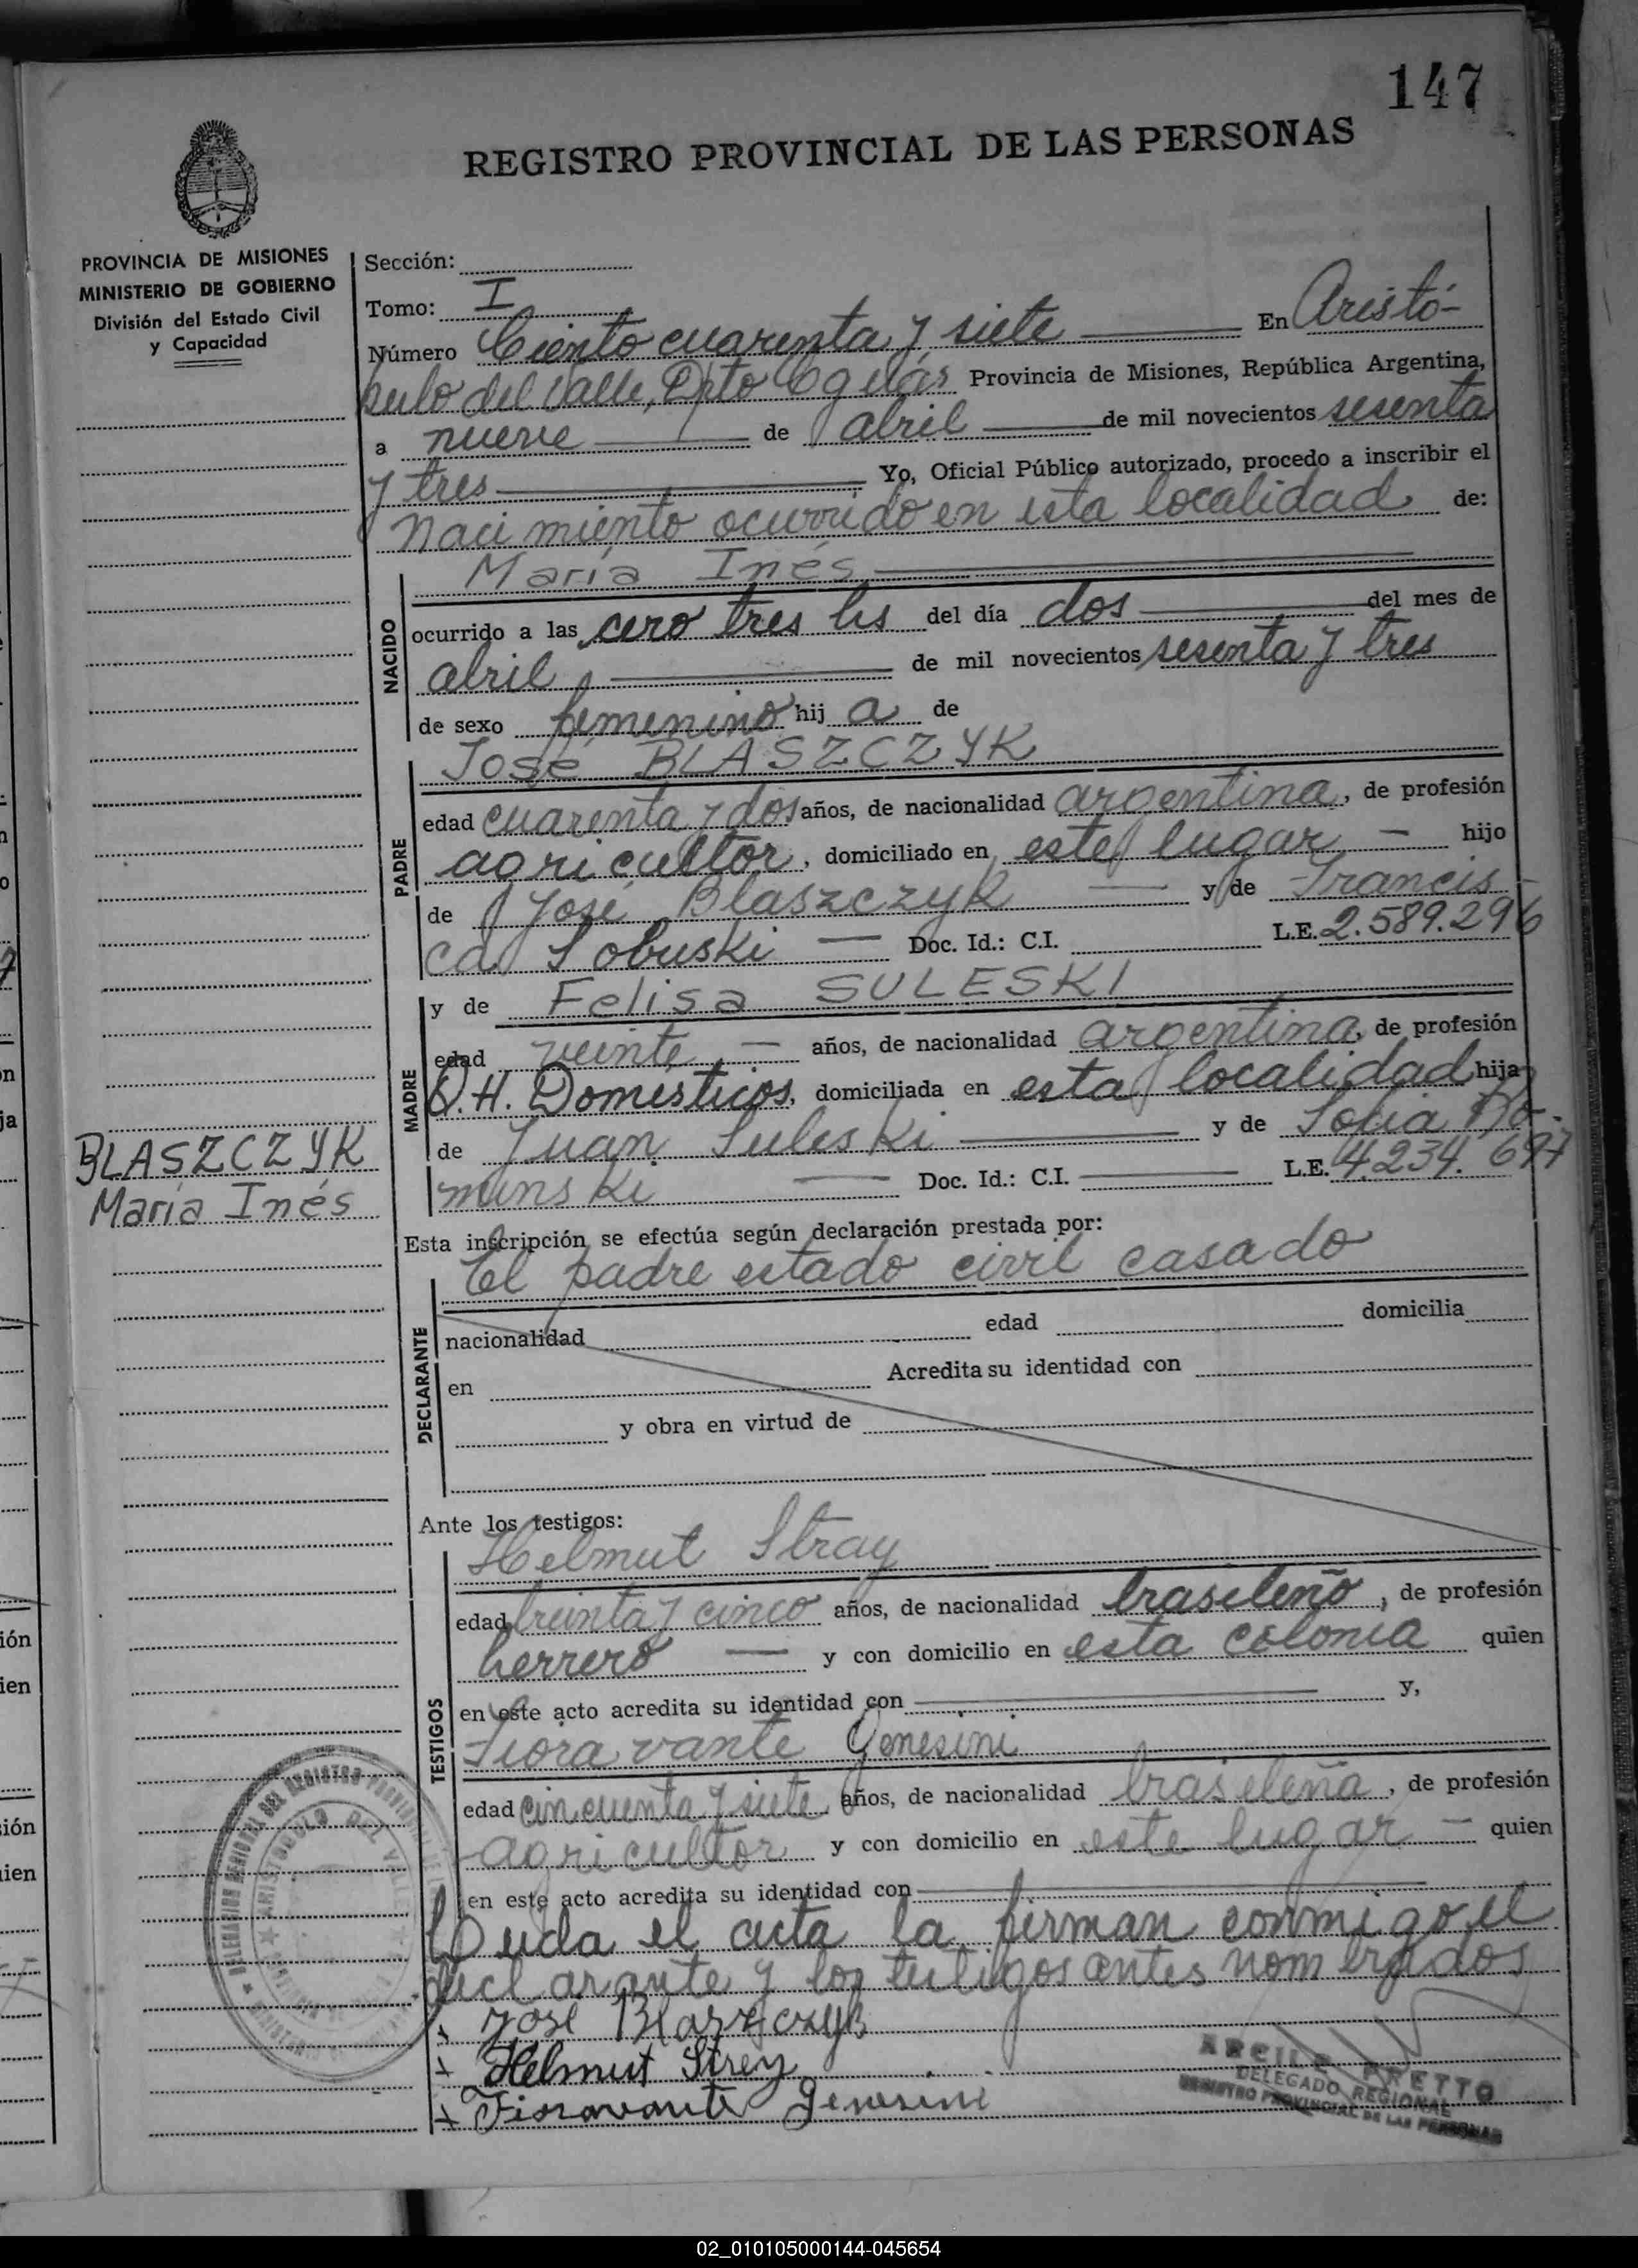 147
REGISTRO PROVINCIAL DE LAS PERSONAS
PROVINCIA DE MISIONES
MINISTERIO DE GOBIERNO
División del Estado Civil
y Capacidad
Sección:
Tomo: I
Número Ciento cuarenta y siete En Aristó-
bulo del Valle, Dpto Cgúas Provincia de Misiones, República Argentina,
a nueve de abril de mil novecientos sesenta
y tres Yo, Oficial Público autorizado, procedo a inscribir el
nacimiento ocurrido en esta localidad de:
María Inés
NACIDO
ocurrido a las cero tres hs del día dos del mes de
abril de mil novecientos sesenta y tres
de sexo femenino hij a de
José BLASZCZYK
PADRE
edad cuarenta y dos años, de nacionalidad argentina, de profesión
agricultor, domiciliado en este lugar — hijo
de José Blaszczyk — y de Francis-
ca Sobuski — Doc. Id.: C.I. L.E. 2.589.296
y de Felisa SULESKI
MADRE
edad veinte — años, de nacionalidad argentina, de profesión
Q.H. Domésticos, domiciliada en esta localidad hija
de Juan Suleski y de Sofia
minski — Doc. Id.: C.I. L.E. 4.234.697
BLASZCZYK
María Inés
Esta inscripción se efectúa según declaración prestada por:
El padre estado civil casado
DECLARANTE
nacionalidad edad domicilia
en Acredita su identidad con
y obra en virtud de
Ante los testigos:
Helmut Stray
TESTIGOS
edad treinta y cinco años, de nacionalidad brasileño, de profesión
herrero — y con domicilio en esta colonia quien
en este acto acredita su identidad con y,
Fioravante Genesini
edad cincuenta y siete años, de nacionalidad brasileña, de profesión
agricultor y con domicilio en este lugar — quien
en este acto acredita su identidad con
Leida el acta la firman conmigo el
declarante y los testigos antes nombrados
José Blaszczyk
Helmut Strey
Fioravante Genesini
ARISTOBULO DEL VALLE
PRETTO
DELEGADO REGIONAL
REGISTRO PROVINCIAL DE LAS PERSONAS
02_010105000144-045654